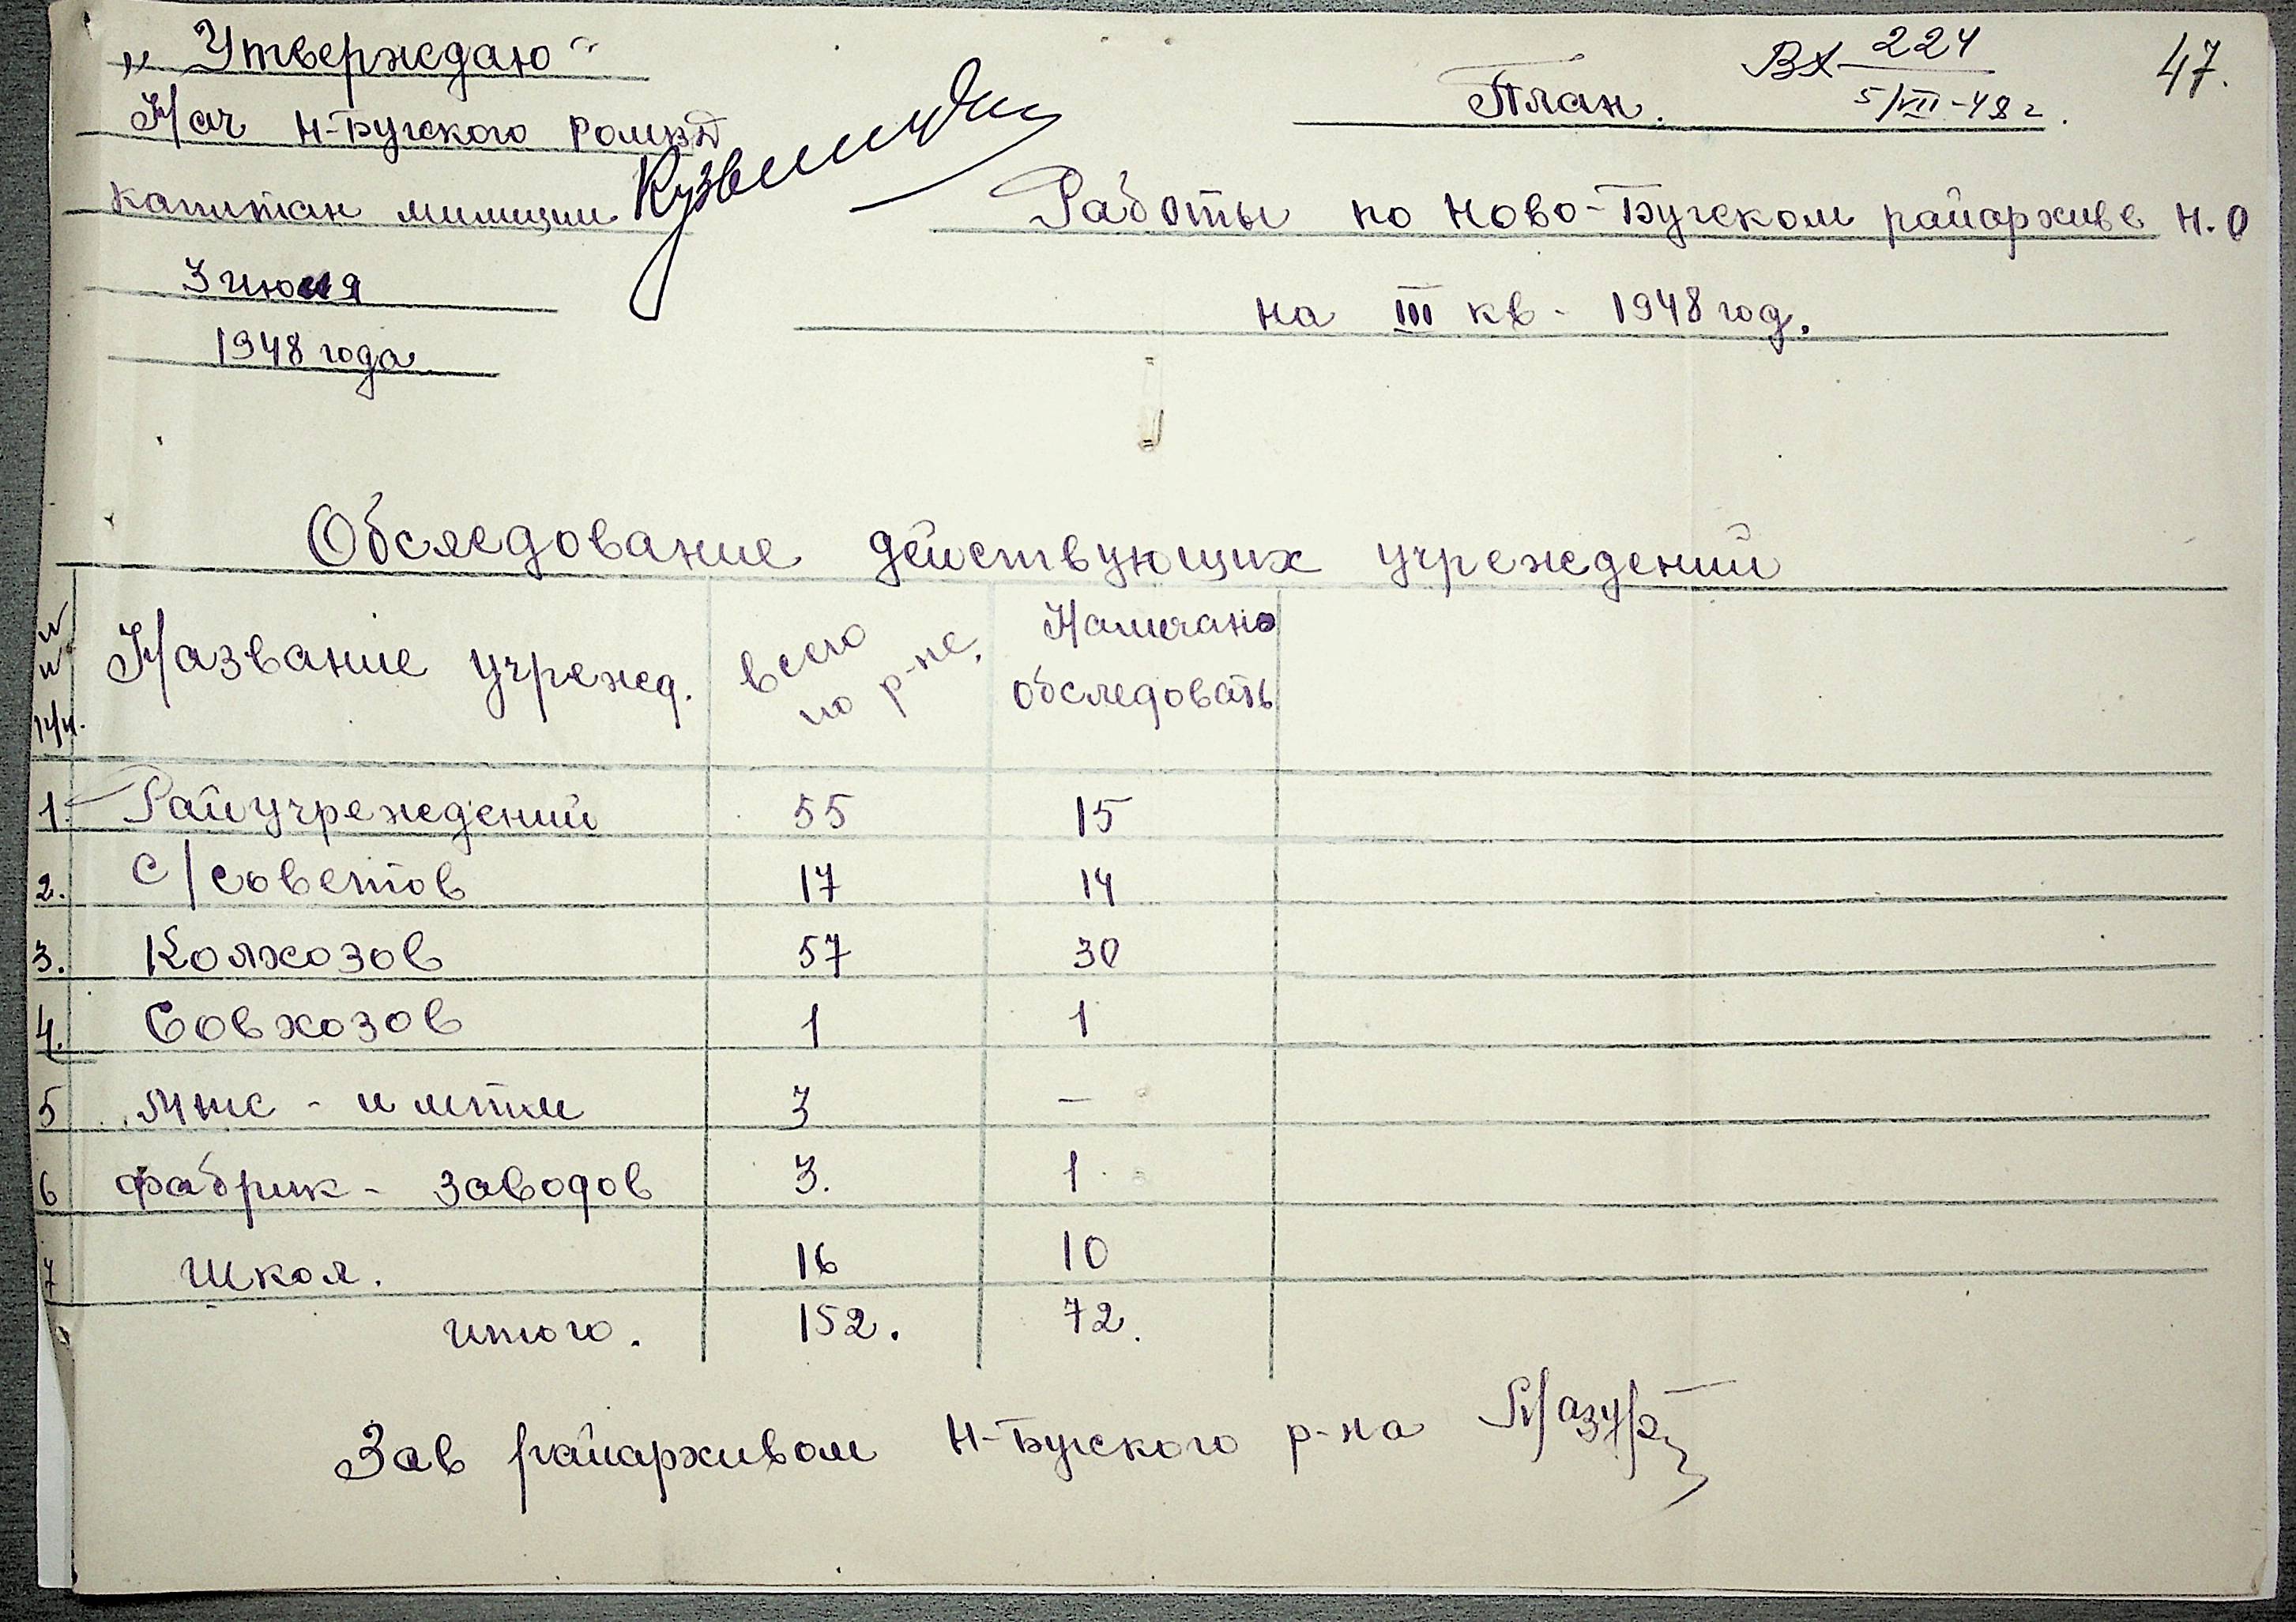 „Утверждаю“
Нач Н-Бугского РОМВД
капитан милиции
3 июня
1948 года
Вх 224
5/VII-48 г.
47.
План.
Работы по Ново-Бугском райархиве Н.О
на III кв - 1948 год.
Обследование действующих учреждений
Название учрежд.
всего по р-не.
Намечано обследовать
1. Райучреждений 55 15
2. С/советов 17 14
3. Колхозов 57 30
4. Совхозов 1 1
5 Мтс - и мтм 3 –
6 Фабрик - заводов 3. 1
7 Школ. 16 10
итого. 152. 72.
Зав райархивом Н-Бугского р-на Мазур